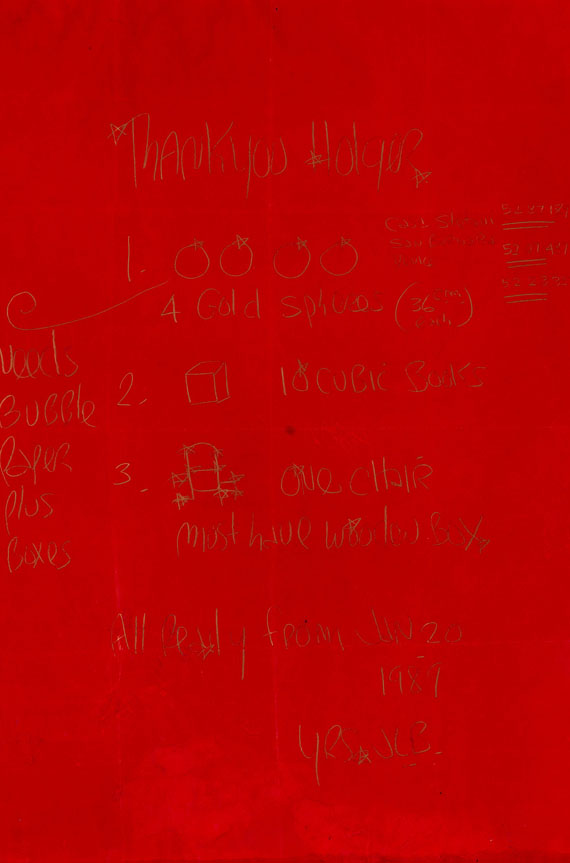 Thankyou Holger
1.
4 Gold Spheres (36 cm each)
needs
Bubble
Paper
plus
Boxes
2. 18 cubic Books
3. one chair
must have wooden Box
All Ready from Jun 20
1989
YRS